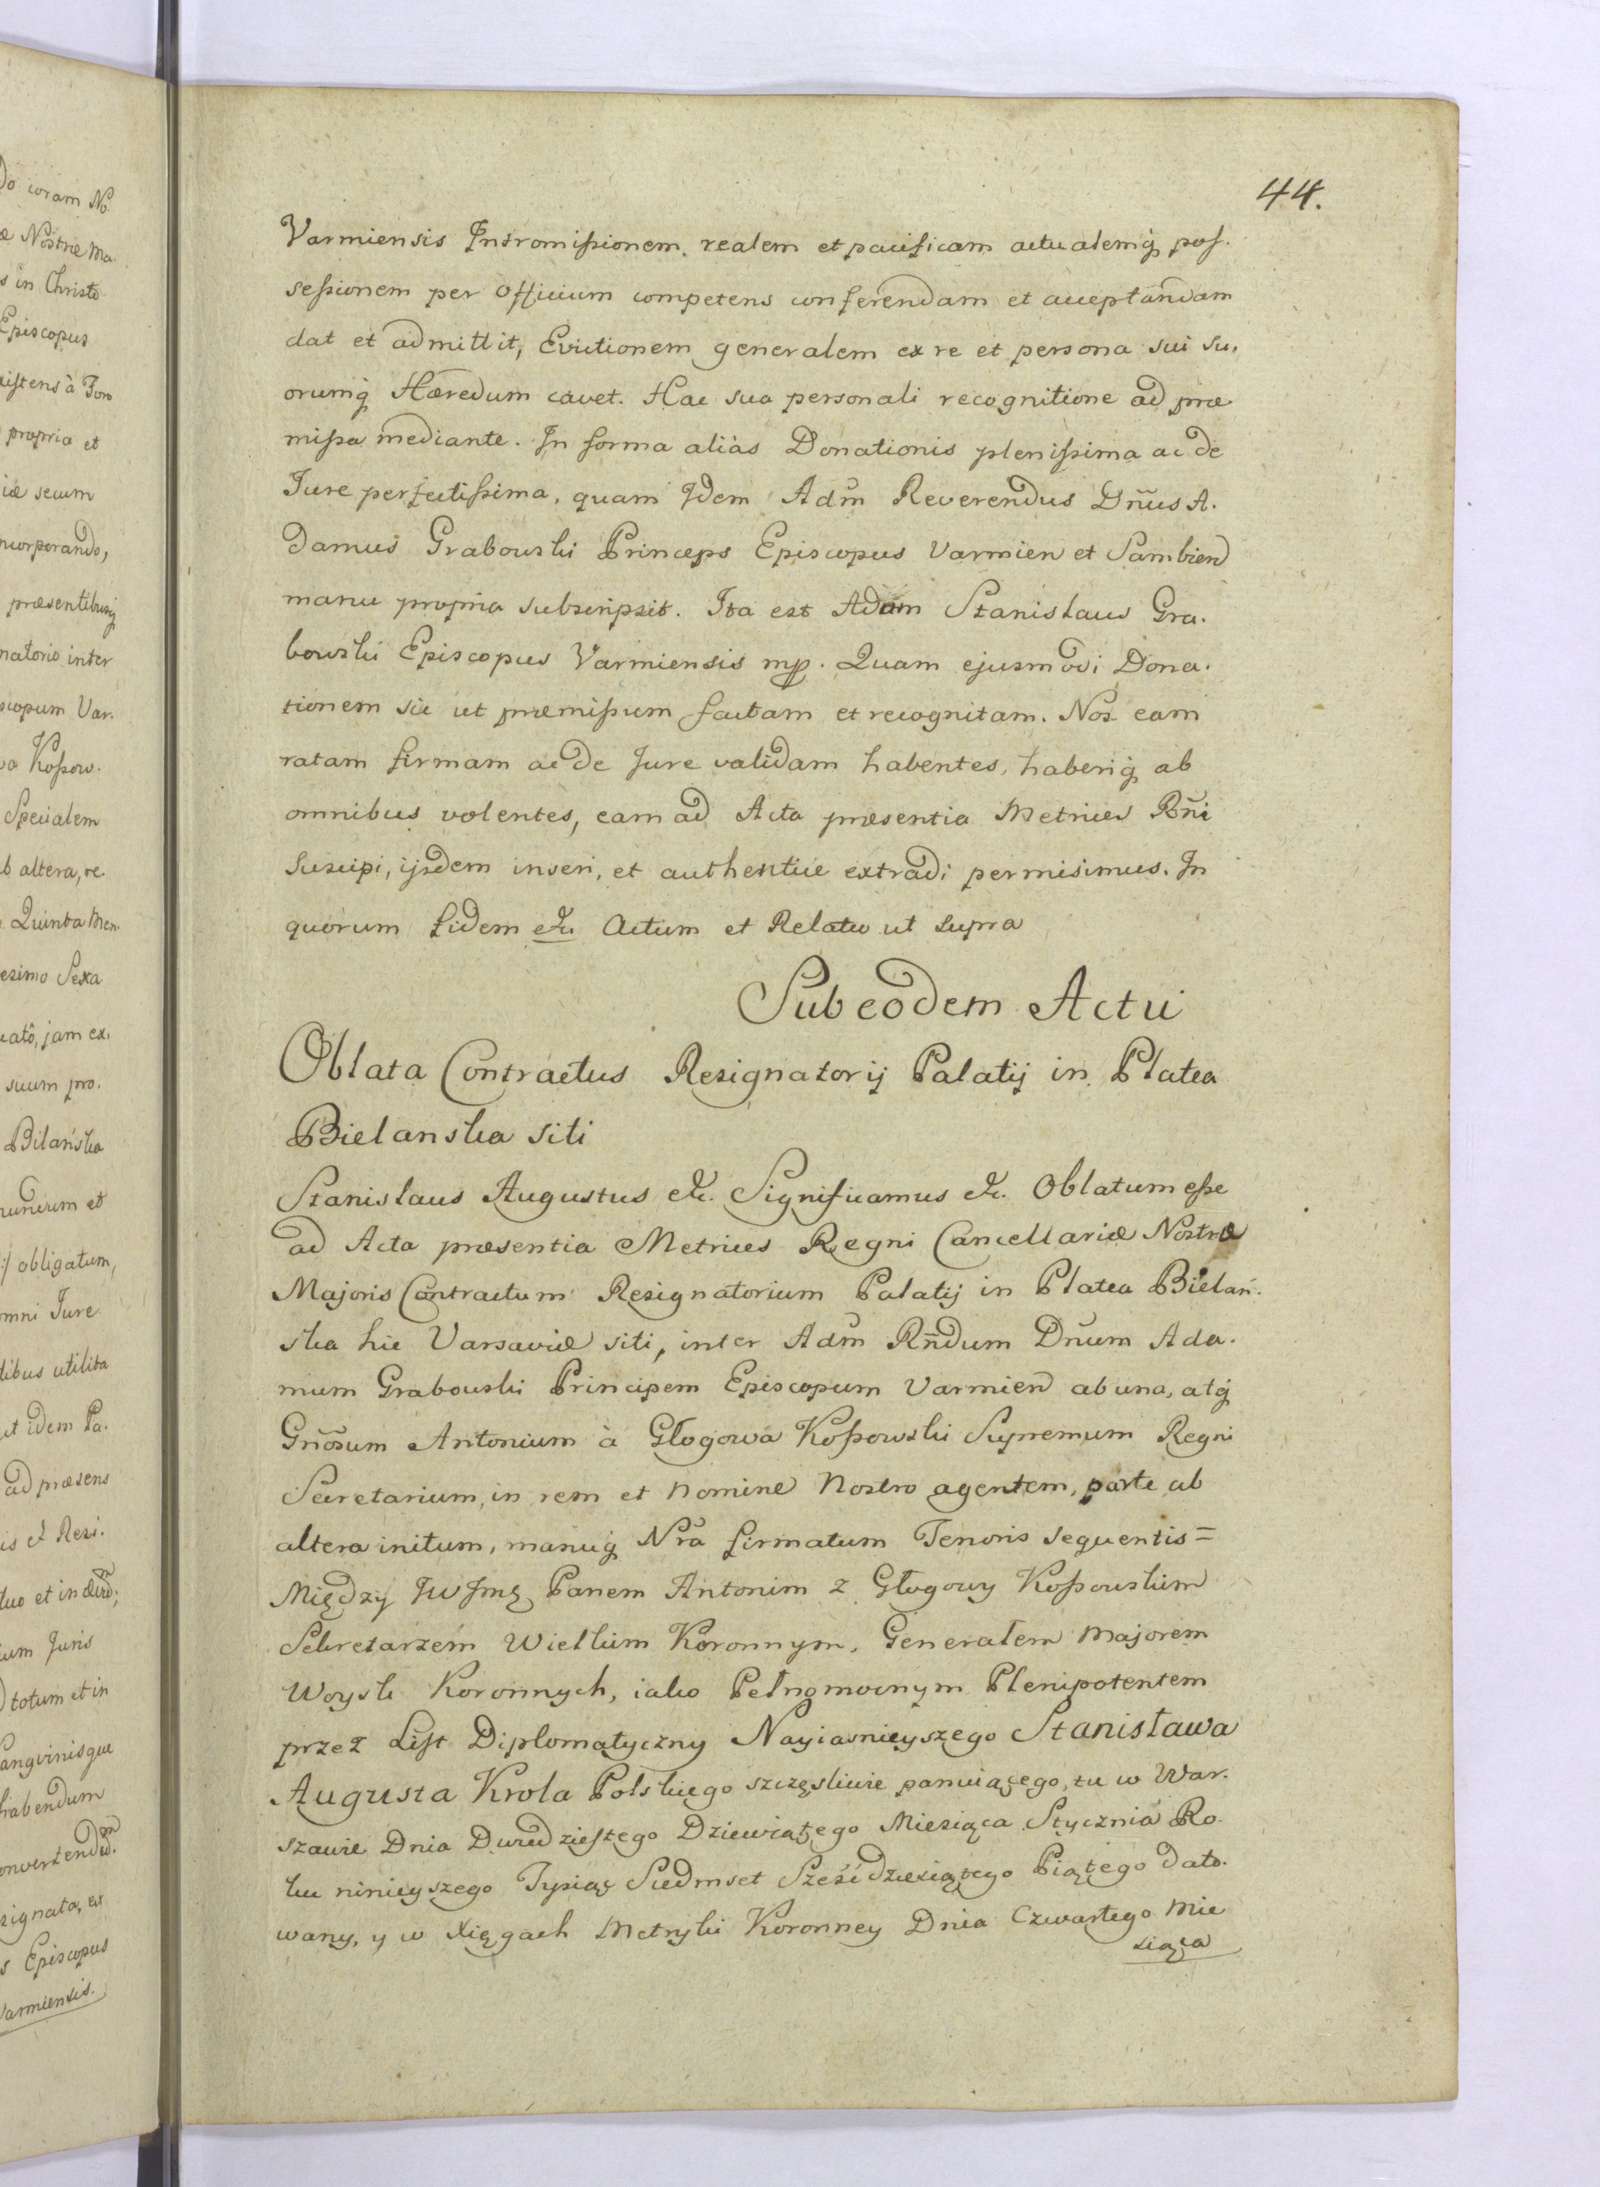 44.
Varmiensis Intromissionem, realem et pacificam actualemq; pos-
sessionem per Officium competens conferendam et acceptandam
dat et admittit, Evictionem generalem ex re et persona sui su-
orumq; Hæredum cavet. Hac sua personali recognitione ad præ-
missa mediante. In forma aliàs Donationis plenissima ac de
Jure perfectissima, quam Idem Adm̃ Reverendus Dñus A-
damus Grabowski Princeps Episcopus Varmien et Sambien
manu propria subscripsit. Ita est Adam Stanislaus Gra-
bowski Episcopus Varmiensis mp. Quam ejusmodi Dona-
tionem sic ut præmissum factam et recognitam. Nos eam
ratam firmam ac de Jure validam habentes, haberiq; ab
omnibus volentes, eam ad Acta præsentia Metrices Rñi
suscipi, ijsdem inseri, et authentice extradi permisimus. In
quorum fidem etc. Actum et Relatio ut supra
Sub eodem Actu
Oblata Contractus Resignatorij Palatij in Platea
Bielanska siti
Stanislaus Augustus etc. Significamus etc. Oblatum esse
ad Acta præsentia Metrices Regni Cancellariæ Nostræ
Majoris Contractum Resignatorium Palatij in Platea Bielań-
ska hic Varsaviæ siti, inter Adm̃ Rñdum Dñum Ada-
mum Grabowski Principem Episcopum Varmien ab una, atq;
Gñosum Antonium à Głogowa Kossowski Supremum Regni
Secretarium, in rem et nomine Nostro agentem, parte ab
altera initum, manuq; Nr̃a firmatum Tenoris sequentis =
Między JW Jmę Panem Antonim z Głogowy Kossowskim
Sekretarzem Wielkim Koronnym, Generałem Majorem
Woysk Koronnych, iako Pełnomocnym Plenipotentem
przez List Diplomatyczny Nayiasnieyszego Stanisława
Augusta Krola Polskiego szczęsliwie panuiącego, tu w War-
szawie Dnia Dwudziestego Dziewiątego Miesiąca Stycznia Ro-
ku ninieyszego Tysiąc Siedmset Sześćdziesiątego Piątego dato-
wany, y w Xięgach Metryki Koronney Dnia Czwartego Mie
siąca